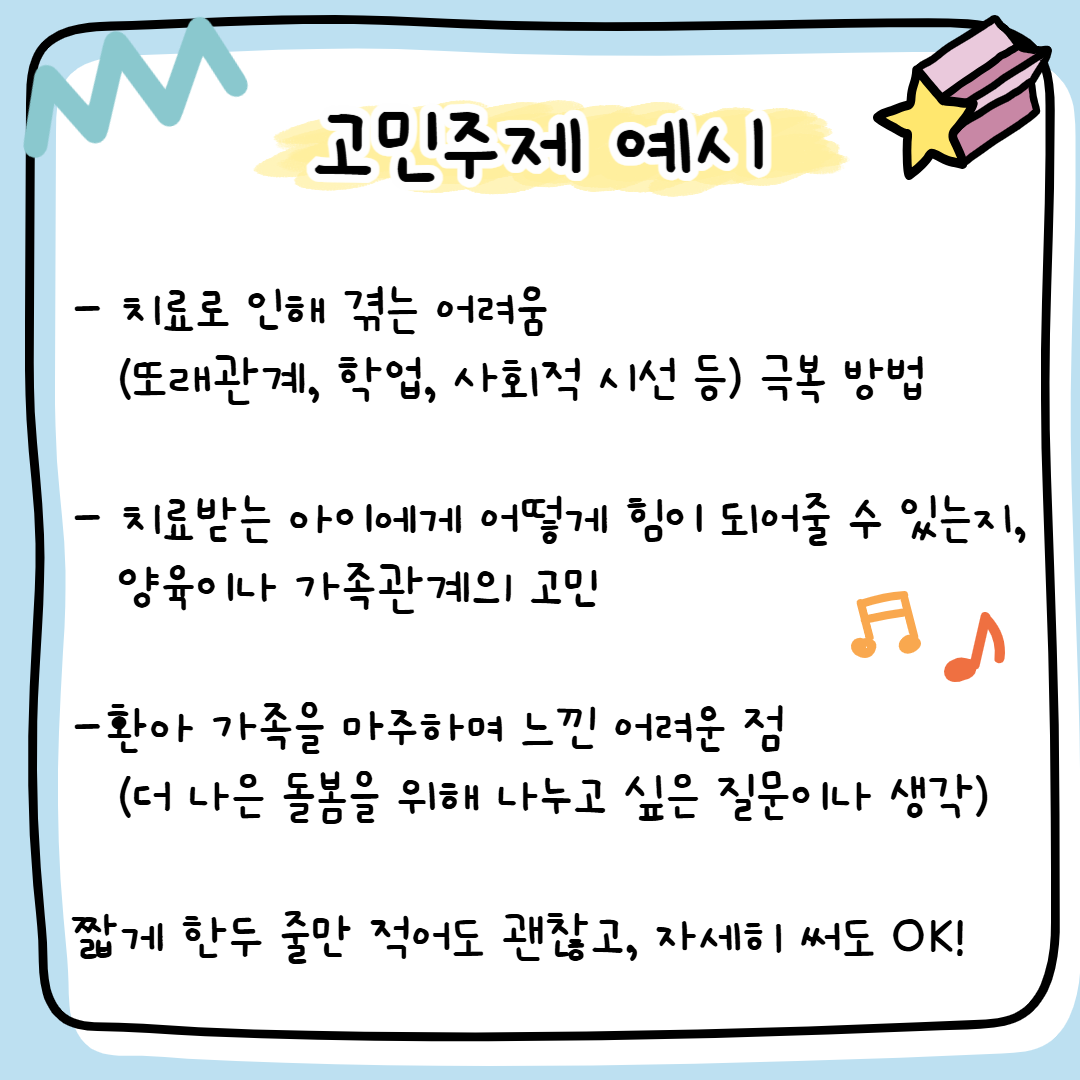 고민주제 예시
- 치료로 인해 겪는 어려움
(또래관계, 학업, 사회적 시선 등) 극복 방법
- 치료받는 아이에게 어떻게 힘이 되어줄 수 있는지,
양육이나 가족관계의 고민
-환아 가족을 마주하며 느낀 어려운 점
(더 나은 돌봄을 위해 나누고 싶은 질문이나 생각)
짧게 한두 줄만 적어도 괜찮고, 자세히 써도 OK!